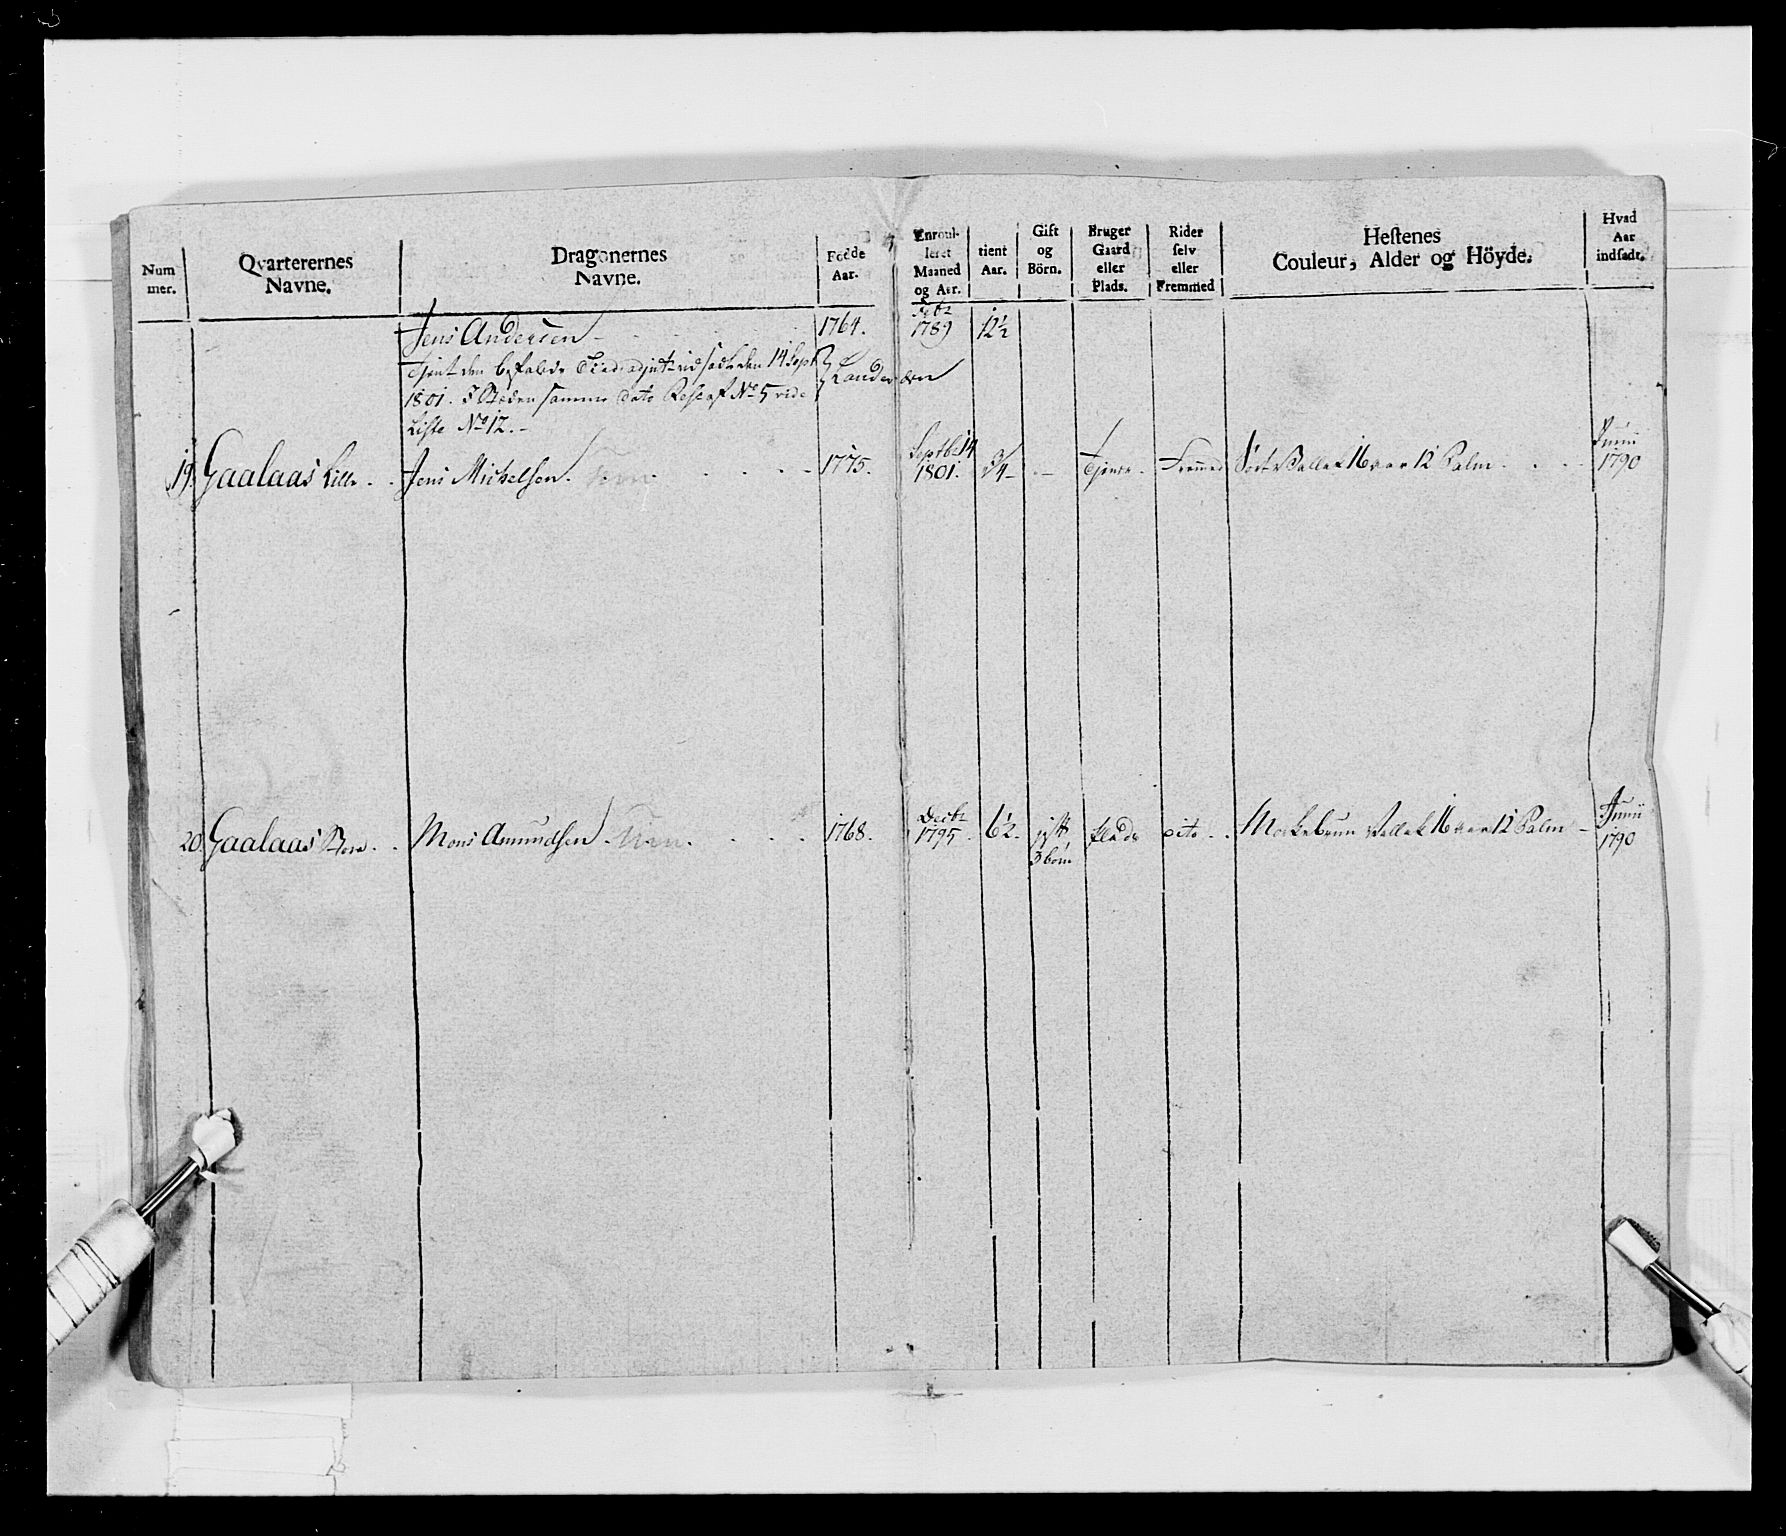 Num
mer.
Qvarterernes
Navne.
Dragonernes
Navne.
Födde
Aar.
Enroul-
leret
Maaned
og Aar.
tient
Aar.
Gift
og
Börn.
Bruger
Gaard
eller
Plads.
Rider
selv
eller
Fremmed
Hestenes
Couleur, Alder og Höyde.
Hvad
Aar
indsadt.
Jens Andersen 1764. 1789 12½
Tjent den befalede Tiid udsadt den 14 Sept
1801. I Steden samme dato
Liste No 12.
19 Gaalaas Lille Jens Michelsen. 1775. Septbr 14 1801. ¾ Tjener Fremmed Sort Vallak 16 aar 12 Palm Junii 1790
20 Gaalaas Store Mons Amundsen 1768. Decbr 1795 6½ gift 3 börn Plads dito Mörkebrun Vallak 16 aar 12 Palm Junii 1790